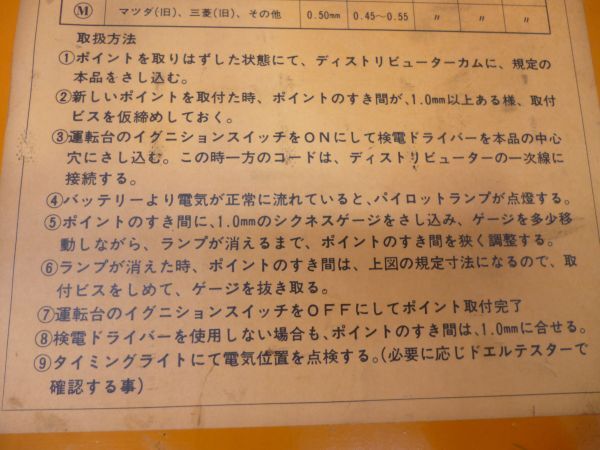 Ⓜ マツダ(旧)、三菱(旧)、その他 0.50mm 0.45〜0.55 〃 〃 〃
取扱方法
①ポイントを取りはずした状態にて、ディストリビューターカムに、規定の
本品をさし込む。
②新しいポイントを取付た時、ポイントのすき間が、1.0mm以上ある様、取付
ビスを仮締めしておく。
③運転台のイグニションスイッチをONにして検電ドライバーを本品の中心
穴にさし込む。この時一方のコードは、ディストリビューターの一次線に
接続する。
④バッテリーより電気が正常に流れていると、パイロットランプが点燈する。
⑤ポイントのすき間に、1.0mmのシクネスゲージをさし込み、ゲージを多少移
動しながら、ランプが消えるまで、ポイントのすき間を狭く調整する。
⑥ランプが消えた時、ポイントのすき間は、上図の規定寸法になるので、取
付ビスをしめて、ゲージを抜き取る。
⑦運転台のイグニションスイッチをOFFにしてポイント取付完了
⑧検電ドライバーを使用しない場合も、ポイントのすき間は、1.0mmに合せる。
⑨タイミングライトにて電気位置を点検する。(必要に応じドエルテスターで
確認する事)